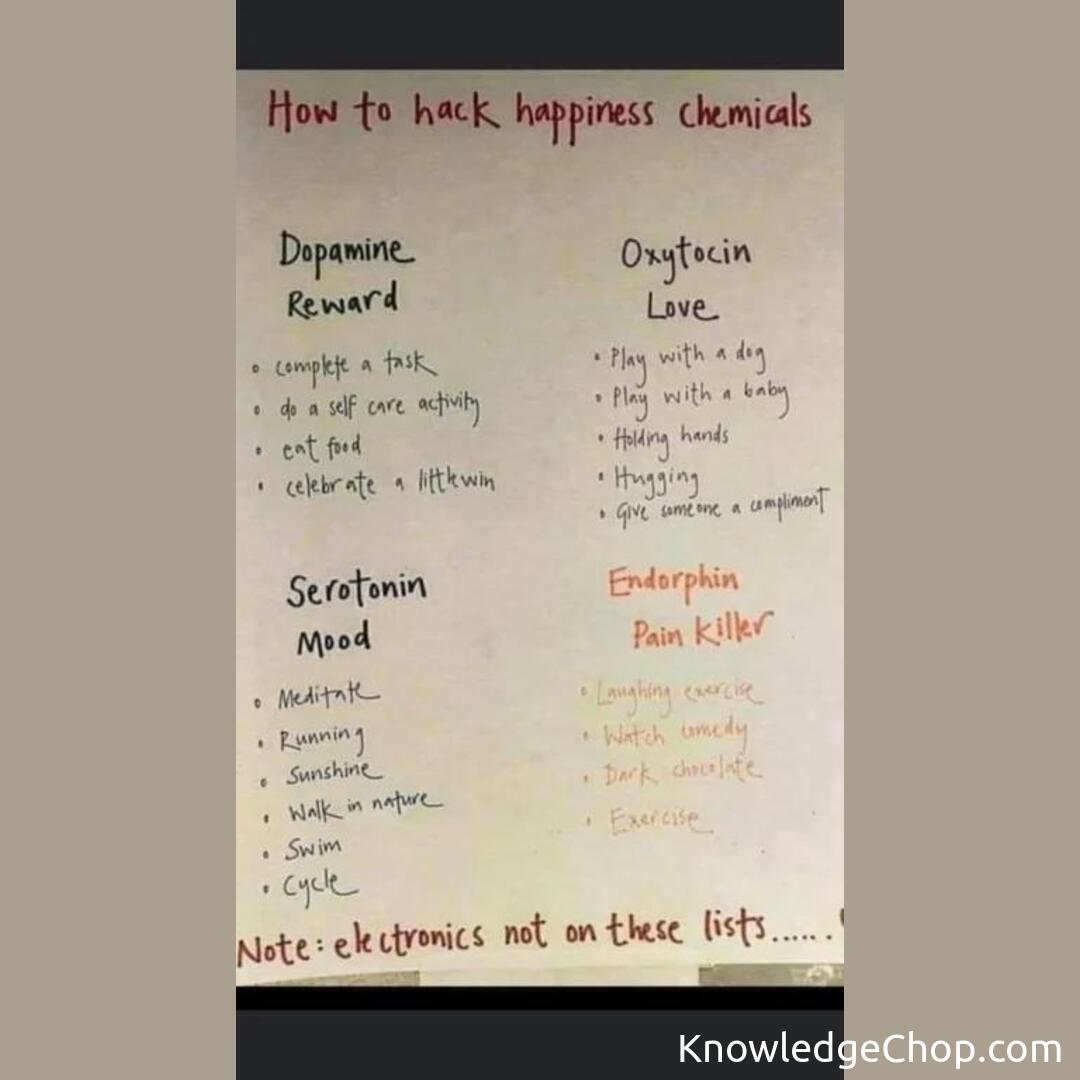 How to hack happiness chemicals
Dopamine
Reward
• complete a task
• do a self care activity
• eat food
• celebrate a little win
Oxytocin
Love
• Play with a dog
• Play with a baby
• Holding hands
• Hugging
• Give someone a compliment
Serotonin
Mood
• Meditate
• Running
• Sunshine
• Walk in nature
• Swim
• Cycle
Endorphin
Pain Killer
• Laughing exercise
• Watch comedy
• Dark chocolate
• Exercise
Note: electronics not on these lists......
KnowledgeChop.com